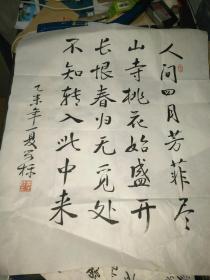 人间四月芳菲尽
山寺桃花始盛开
长恨春归无觅处
不知转入此中来
乙未年夏